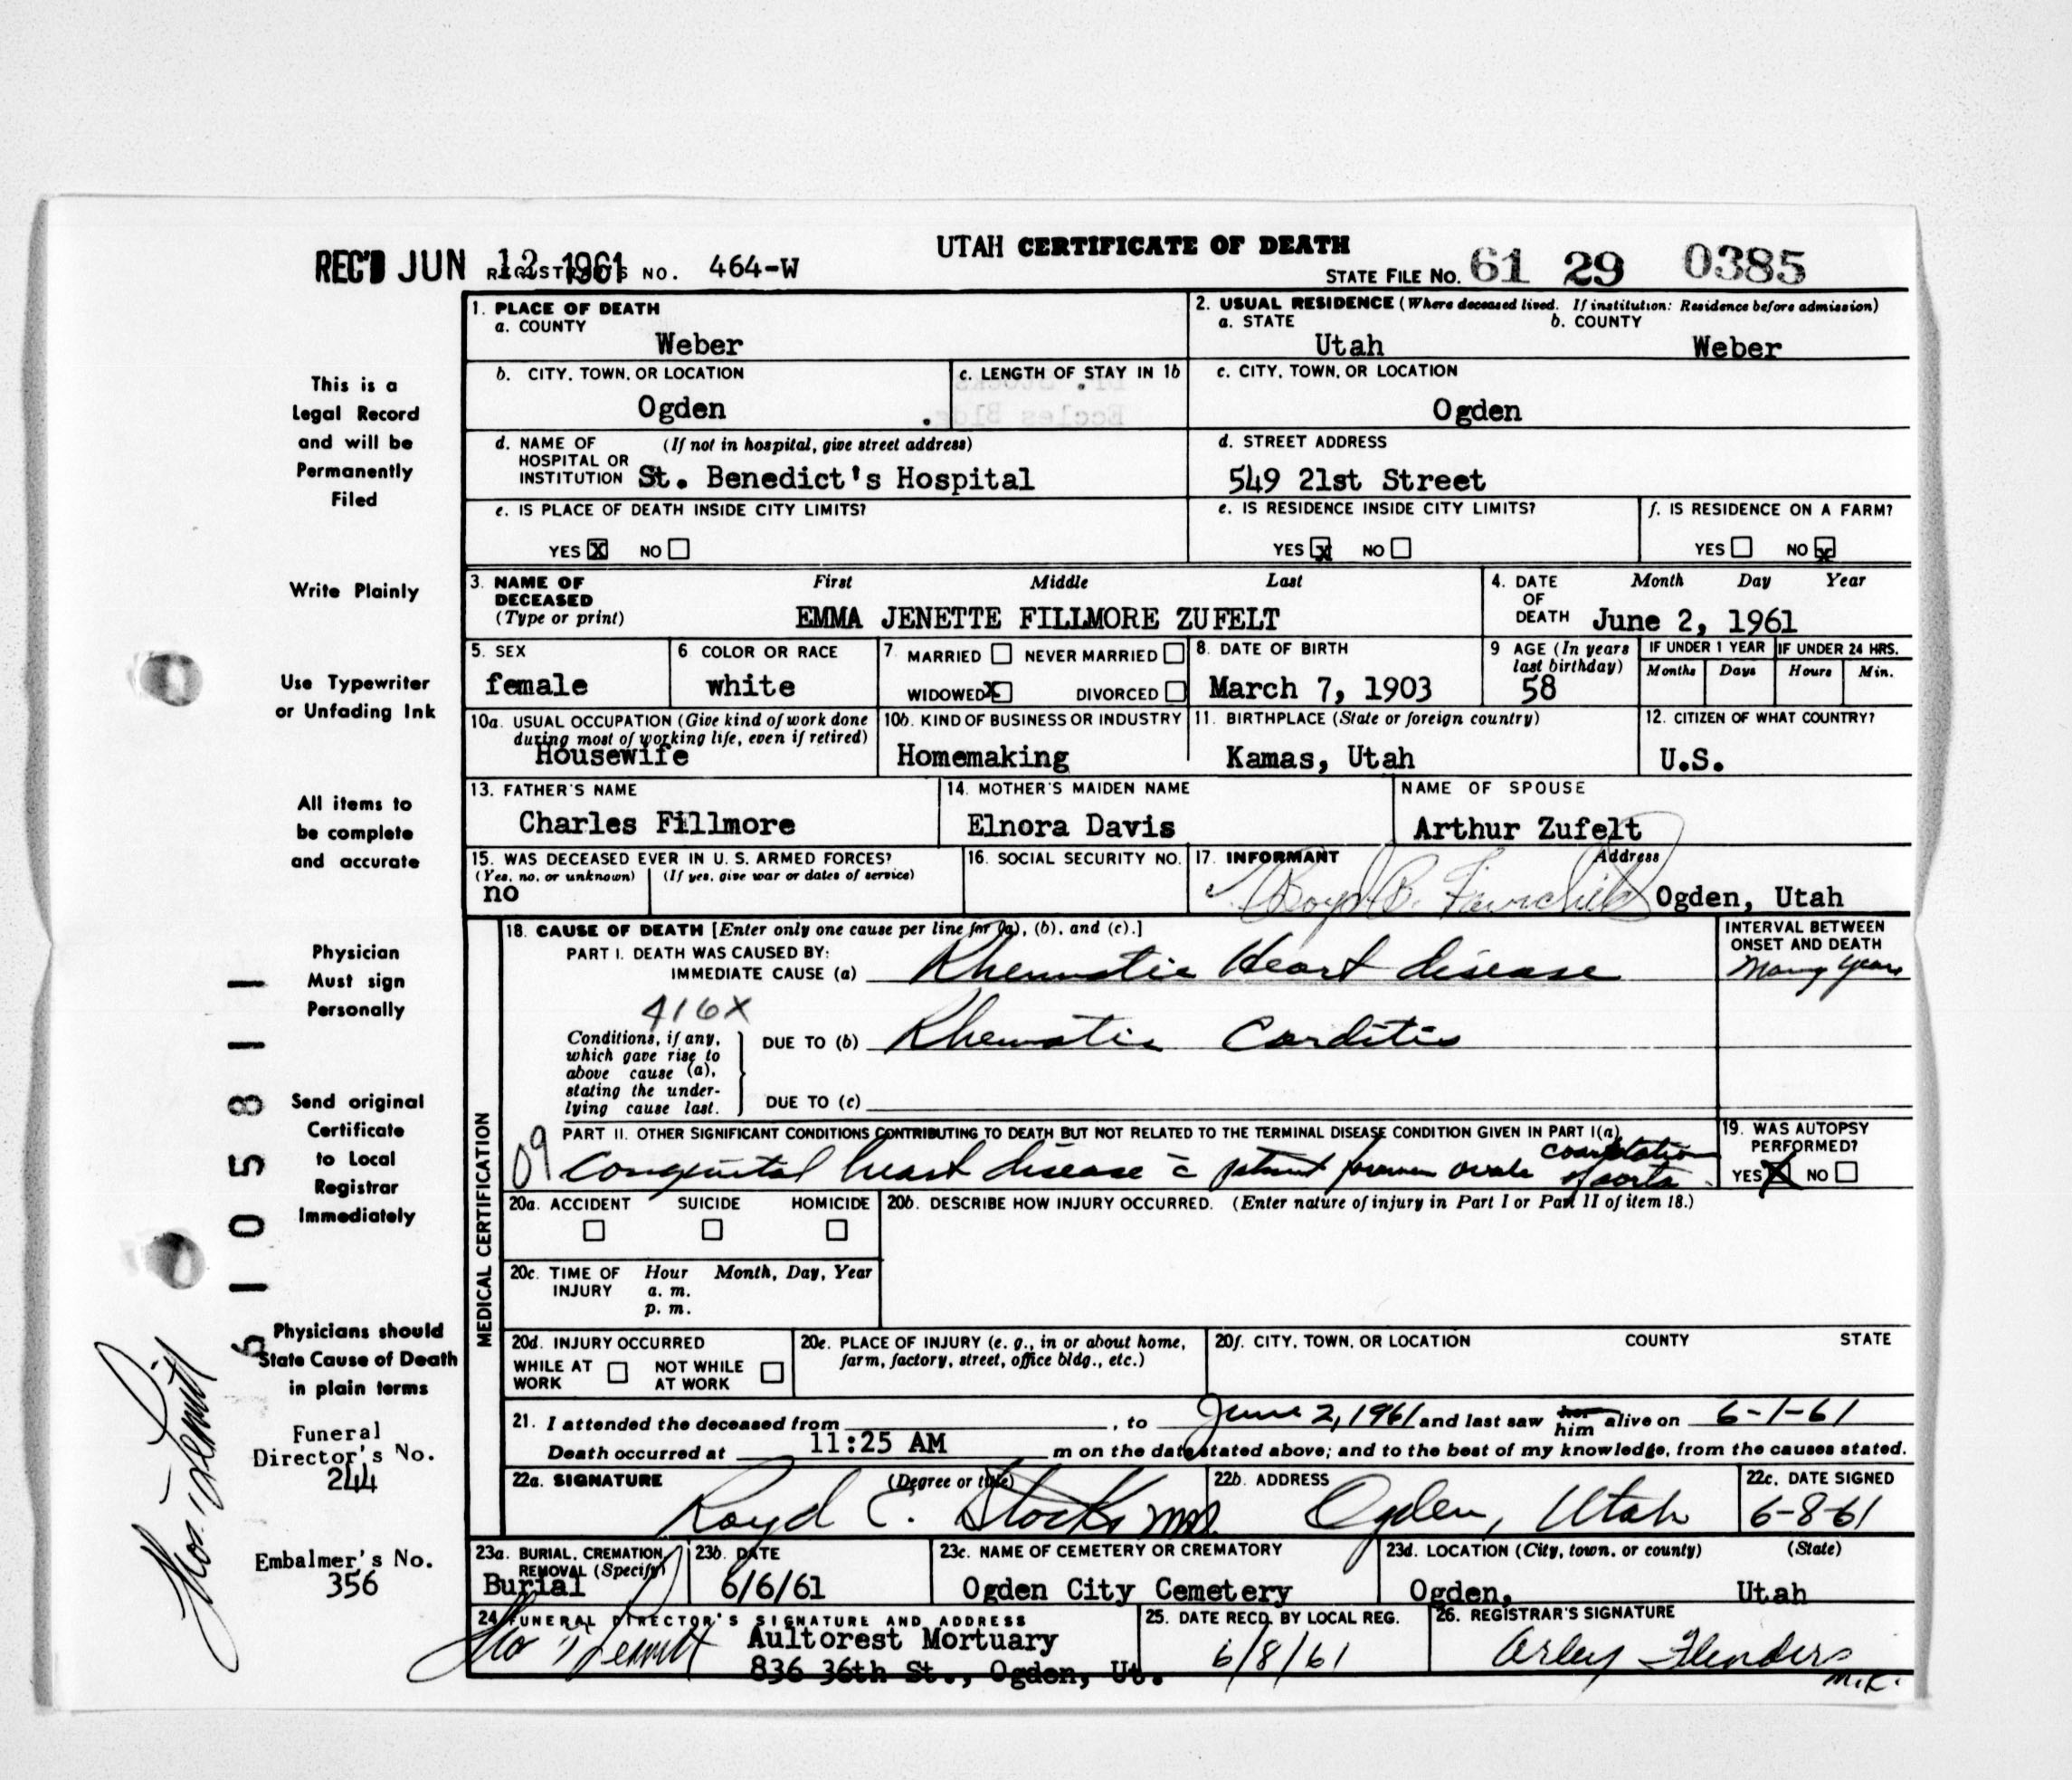 UTAH CERTIFICATE OF DEATH
REC'D JUN 12 1961 REGISTRAR'S NO. 464-W
STATE FILE NO. 61 29 0385
1. PLACE OF DEATH
a. COUNTY
Weber
2. USUAL RESIDENCE (Where deceased lived. If institution: Residence before admission)
a. STATE b. COUNTY
Utah Weber
b. CITY, TOWN, OR LOCATION
Ogden
c. LENGTH OF STAY IN 1b
c. CITY, TOWN, OR LOCATION
Ogden
d. NAME OF HOSPITAL OR INSTITUTION (If not in hospital, give street address)
St. Benedict's Hospital
d. STREET ADDRESS
549 21st Street
e. IS PLACE OF DEATH INSIDE CITY LIMITS?
YES X NO
e. IS RESIDENCE INSIDE CITY LIMITS?
YES X NO
f. IS RESIDENCE ON A FARM?
YES NO X
3. NAME OF DECEASED (Type or print) First Middle Last
EMMA JENETTE FILLMORE ZUFELT
4. DATE OF DEATH Month Day Year
June 2, 1961
5. SEX
female
6 COLOR OR RACE
white
7 MARRIED NEVER MARRIED
WIDOWED X DIVORCED
8. DATE OF BIRTH
March 7, 1903
9 AGE (In years last birthday)
58
IF UNDER 1 YEAR IF UNDER 24 HRS.
Months Days Hours Min.
10a. USUAL OCCUPATION (Give kind of work done during most of working life, even if retired)
Housewife
10b. KIND OF BUSINESS OR INDUSTRY
Homemaking
11. BIRTHPLACE (State or foreign country)
Kamas, Utah
12. CITIZEN OF WHAT COUNTRY?
U.S.
13. FATHER'S NAME
Charles Fillmore
14. MOTHER'S MAIDEN NAME
Elnora Davis
NAME OF SPOUSE
Arthur Zufelt
15. WAS DECEASED EVER IN U. S. ARMED FORCES?
(Yes, no, or unknown) (If yes, give war or dates of service)
no
16. SOCIAL SECURITY NO.
17. INFORMANT Address
Boyd B. Fairchild Ogden, Utah
MEDICAL CERTIFICATION
18. CAUSE OF DEATH [Enter only one cause per line for (a), (b), and (c).]
INTERVAL BETWEEN ONSET AND DEATH
PART I. DEATH WAS CAUSED BY:
IMMEDIATE CAUSE (a) Rheumatic Heart disease Many years
416X
Conditions, if any, which gave rise to above cause (a), stating the underlying cause last.
DUE TO (b) Rheumatic Carditis
DUE TO (c)
PART II. OTHER SIGNIFICANT CONDITIONS CONTRIBUTING TO DEATH BUT NOT RELATED TO THE TERMINAL DISEASE CONDITION GIVEN IN PART I(a)
09 Congenital heart disease c̄ patent foramen ovale coarctation of aorta.
19. WAS AUTOPSY PERFORMED?
YES X NO
20a. ACCIDENT SUICIDE HOMICIDE
20b. DESCRIBE HOW INJURY OCCURRED. (Enter nature of injury in Part I or Part II of item 18.)
20c. TIME OF INJURY Hour Month, Day, Year
a. m.
p. m.
20d. INJURY OCCURRED
WHILE AT WORK NOT WHILE AT WORK
20e. PLACE OF INJURY (e. g., in or about home, farm, factory, street, office bldg., etc.)
20f. CITY, TOWN, OR LOCATION COUNTY STATE
21. I attended the deceased from , to June 2, 1961 and last saw her him alive on 6-1-61
Death occurred at 11:25 AM m on the date stated above; and to the best of my knowledge, from the causes stated.
22a. SIGNATURE (Degree or title)
Royd C. Stocks MD.
22b. ADDRESS
Ogden, Utah
22c. DATE SIGNED
6-8-61
23a. BURIAL, CREMATION, REMOVAL (Specify)
Burial
23b. DATE
6/6/61
23c. NAME OF CEMETERY OR CREMATORY
Ogden City Cemetery
23d. LOCATION (City, town, or county) (State)
Ogden, Utah
24 FUNERAL DIRECTOR'S SIGNATURE AND ADDRESS
Aultorest Mortuary
836 36th St., Ogden, Ut.
25. DATE RECD. BY LOCAL REG.
6/8/61
26. REGISTRAR'S SIGNATURE
Arley Flinders
M.K.
This is a
Legal Record
and will be
Permanently
Filed
Write Plainly
Use Typewriter
or Unfading Ink
All items to
be complete
and accurate
Physician
Must sign
Personally
Send original
Certificate
to Local
Registrar
Immediately
Physicians should
State Cause of Death
in plain terms
Funeral
Director's No.
244
Embalmer's No.
356